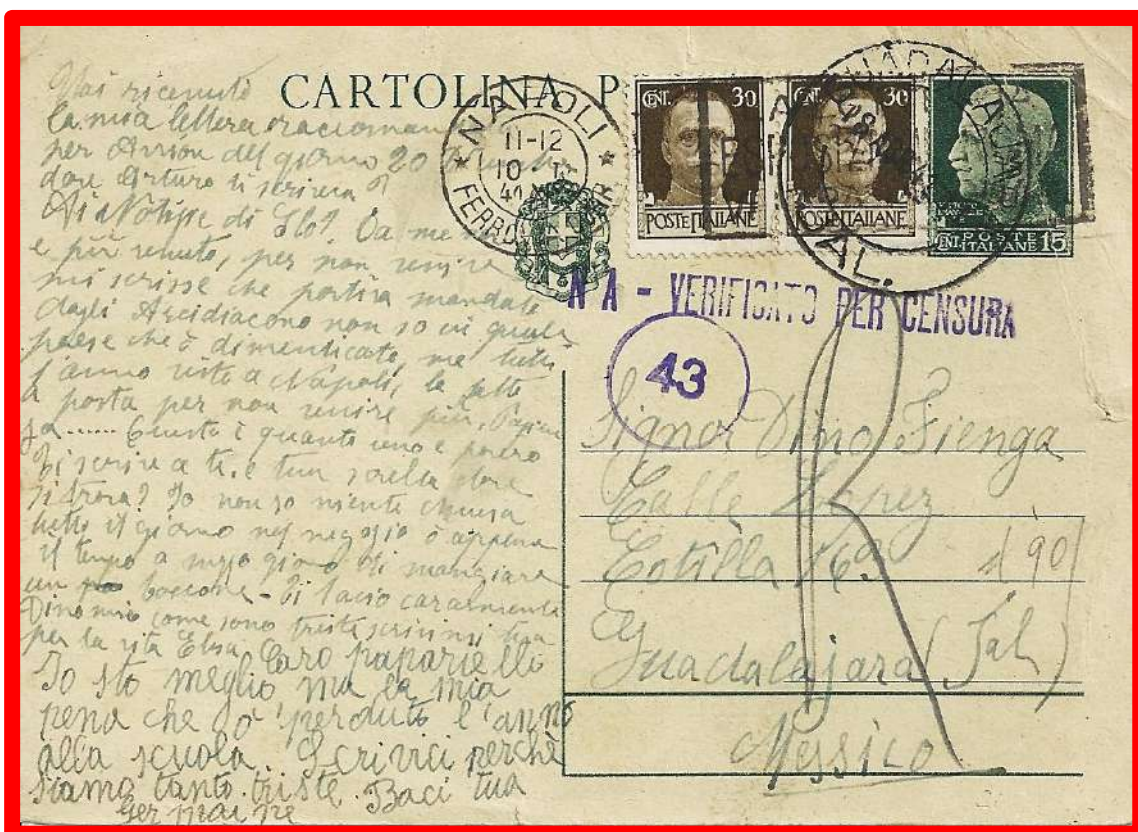 CARTOLINA P
NAPOLI
11-12
10
FERROV
CENT. 30
POSTE ITALIANE
CENT. 30
POSTE ITALIANE
GUADALAJARA
JAL.
POSTE
CENT. ITALIANE 15
N A - VERIFICATO PER CENSURA
43
R
Signor Dino Fienga
Calle Lopez
Cotilla 169
Guadalajara (Jal)
Messico
190
Hai ricevuto
la mia lettera
per del giorno 20
dove Arturo ti scriveva?
Ai Notizie di Da me
e più venuto, per non venire
mi scrisse che partiva mandato
dagli Arcidiacono non so in quale
paese che ò dimenticato, ma tutti
l'anno visto a Napoli, la fatto
a posta per non venire più,
Questo è quanto uno è povero
Ti scrive a te, e tua sorella dove
si trova? Io non so niente chiusa
tutto il giorno nel negozio ò appena
il tempo a mezzo giorno di mangiare
un boccone - Ti bacio caramente
Dino mio come sono triste scrivimi tua
per la vita Elisa Caro papariello
Io sto meglio ma la mia
pena che ò perduto l'anno
alla scuola. Scrivici perchè
siamo tanto triste. Baci tua
Germaine